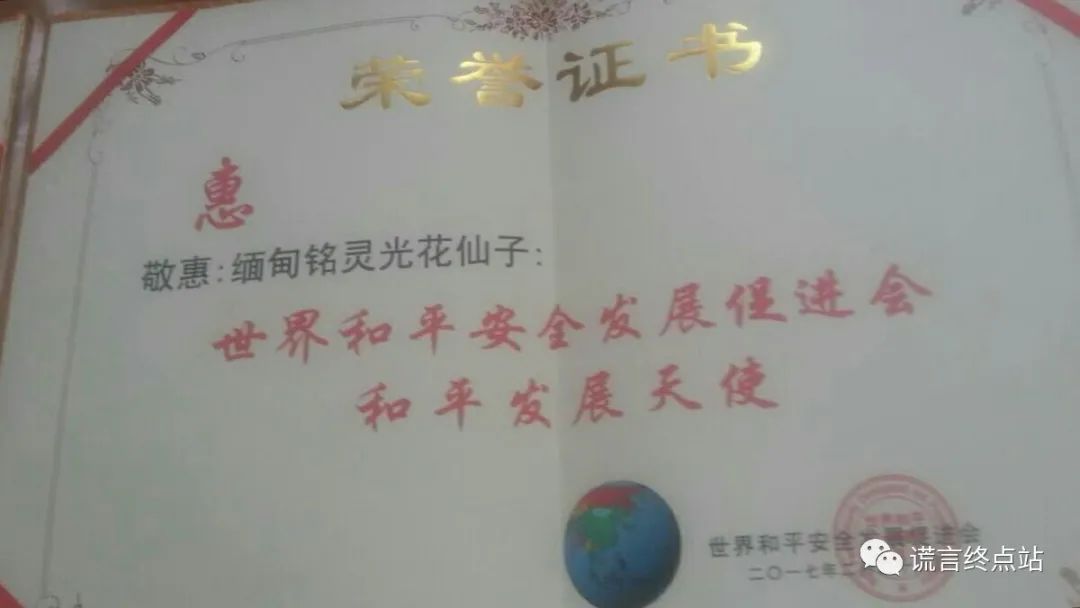 荣誉证书
惠
敬惠:缅甸铭灵光花仙子:
世界和平安全发展促进会
和平发展天使
世界和平安全发展促进会
二〇一七年二
谎言终点站